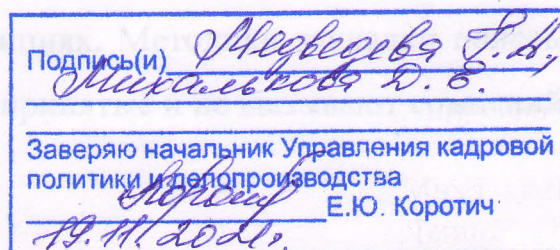 Подпись(и) Медведева Г.А.,
Михалькова Д. Е.
Заверяю начальник Управления кадровой
политики и делопроизводства
Е.Ю. Коротич
19.11.2021г.